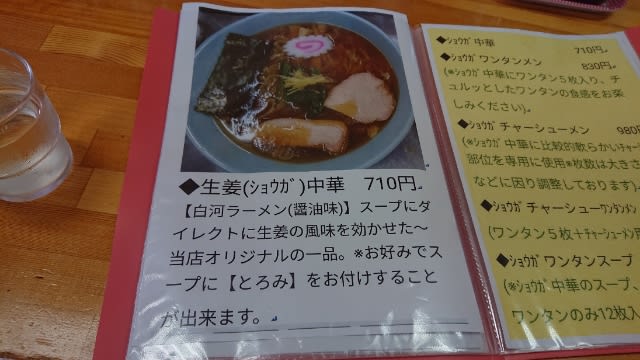 ◆生姜(ｼｮｳｶﾞ)中華 710円。
【白河ラーメン(醤油味)】スープにダ
イレクトに生姜の風味を効かせた～
当店オリジナルの一品。※お好みでス
ープに【とろみ】をお付けすること
が出来ます。
◆ｼｮｳｶﾞ中華 710円。
◆ｼｮｳｶﾞワンタンメン 830円。
(※ｼｮｳｶﾞ中華にワンタン５枚入り、チ
ュルッとしたワンタンの食感をお楽
しみください)。
◆ｼｮｳｶﾞチャーシューメン 980
(※ｼｮｳｶﾞ中華に比較的軟らかいﾁｬｰ
部位を専用に使用※枚数は大き
などに因り調整しております)
◆ｼｮｳｶﾞチャーシューﾜﾝﾀﾝﾒﾝ
(ワンタン５枚＋ﾁｬｰｼｭｰﾒﾝ
◆ｼｮｳｶﾞワンタンスープ
(※ｼｮｳｶﾞ中華のスープ、
ワンタンのみ12枚入